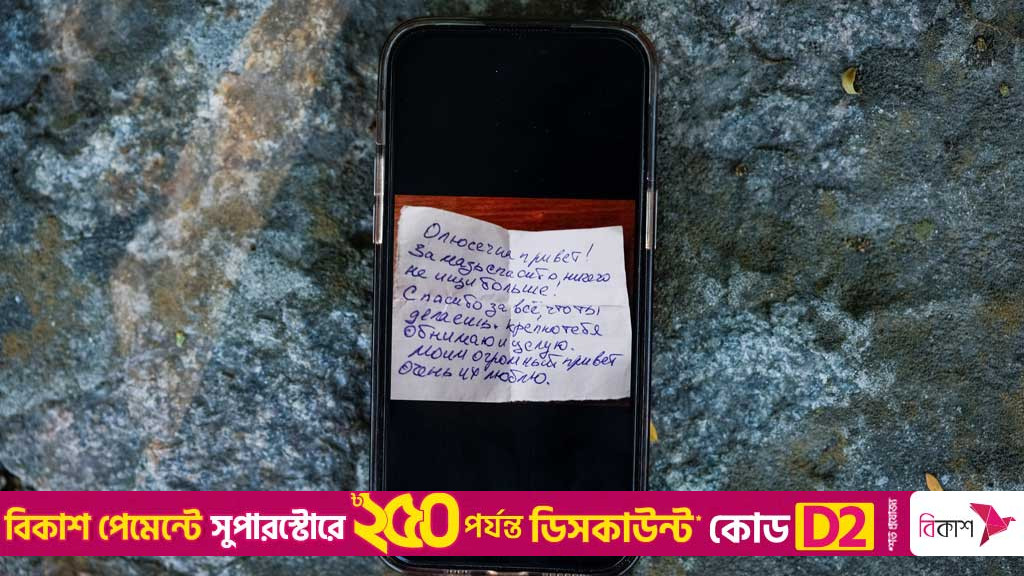 Олюсечка привет!
За мазь спасибо, ничего
не ищи больше.
Спасибо за всё, что ты
делаешь. крепко тебя
Обнимаю и целую.
Моим огромный привет
очень их люблю.
বিকাশ পেমেন্টে সুপারস্টোরে ৳২৫০ পর্যন্ত ডিসকাউন্ট* কোড D2
*শর্ত প্রযোজ্য
বিকাশ